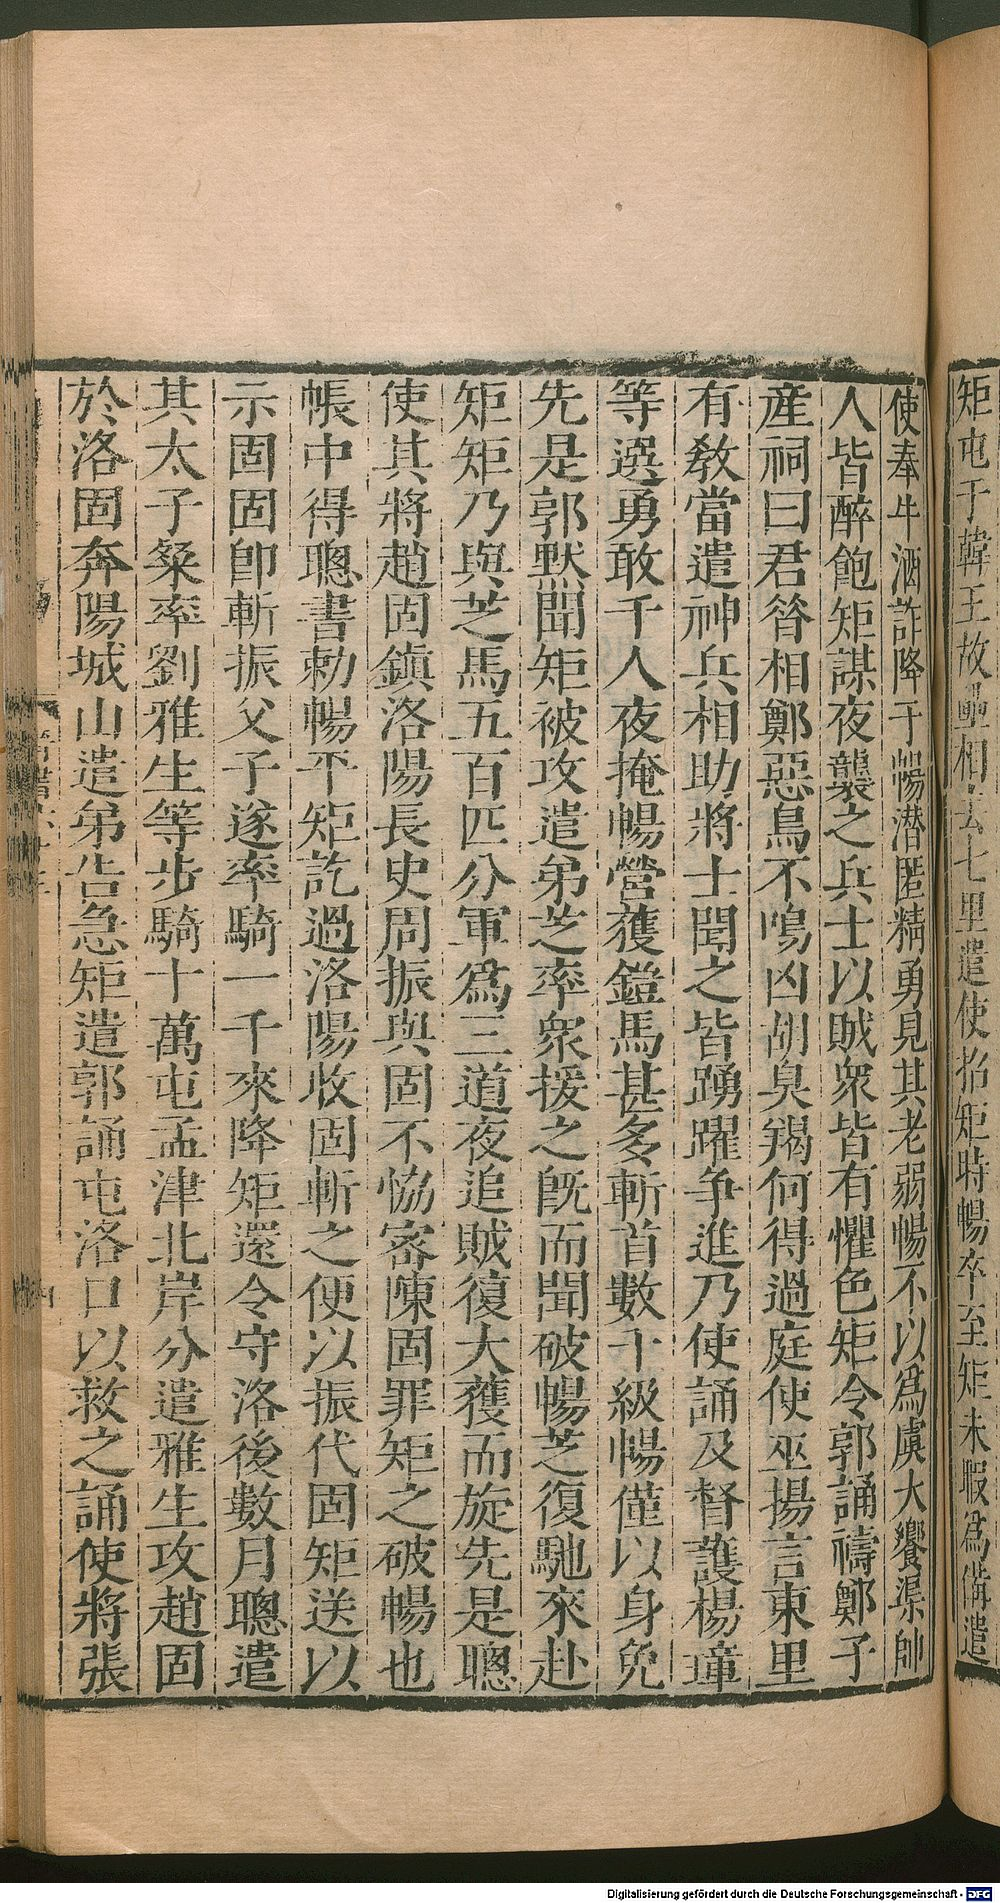 矩屯于韓王故壘相去七里遣使招矩時暢卒至矩未暇爲備遣
使奉牛酒詐降于暢潜匿精勇見其老弱暢不以爲虞大饗渠帥
人皆醉飽矩謀夜襲之兵士以賊衆皆有懼色矩令郭誦禱鄭子
産祠曰君昝相鄭惡鳥不鳴凶胡臭羯何得過庭使巫揚言東里
有敎當遣神兵相助將士聞之皆踴躍争進乃使誦及督護楊璋
等選勇敢千人夜掩暢營獲鎧馬甚多斬首數千級暢僅以身免
先是郭默聞矩被攻遣弟芝率衆援之旣而聞破暢芝復馳來赴
矩矩乃與芝馬五百匹分軍爲三道夜追賊復大獲而旋先是聰
使其將趙固鎮洛陽長史周振與固不恊密陳固罪矩之破暢也
帳中得聰書勅暢平矩訖過洛陽收固斬之便以振代固矩送以
示固固卽斬振父子遂率騎一千來降矩還令守洛後數月聰遣
其太子粲率劉雅生等步騎十萬屯孟津北岸分遣雅生攻趙固
於洛固奔陽城山遣弟告急矩遣郭誦屯洛口以救之誦使將張
Digitalisierung gefördert durch die Deutsche Forschungsgemeinschaft - DFG